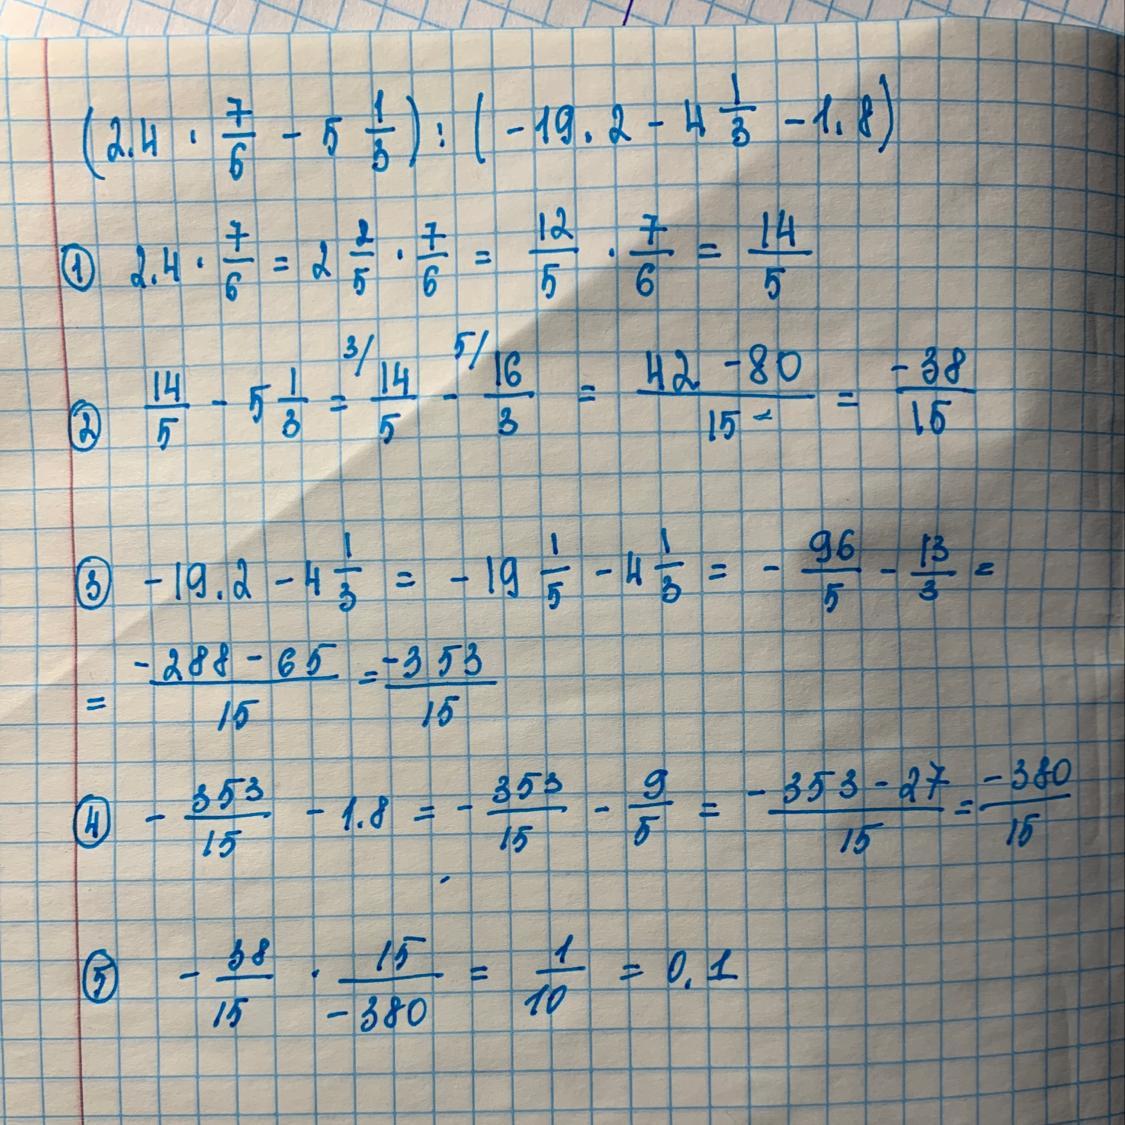 (2.4 · 7/6 - 5 1/3) : (-19.2 - 4 1/3 - 1.8)
① 2.4 · 7/6 = 2 2/5 · 7/6 = 12/5 · 7/6 = 14/5
② 14/5 - 5 1/3 = 3/ 14/5 - 5/ 16/3 = (42 - 80)/15 = -38/15
③ -19.2 - 4 1/3 = -19 1/5 - 4 1/3 = - 96/5 - 13/3 =
= (-288 - 65)/15 = -353/15
④ - 353/15 - 1.8 = - 353/15 - 9/5 = (-353 - 27)/15 = -380/15
⑤ - 38/15 · 15/-380 = 1/10 = 0.1